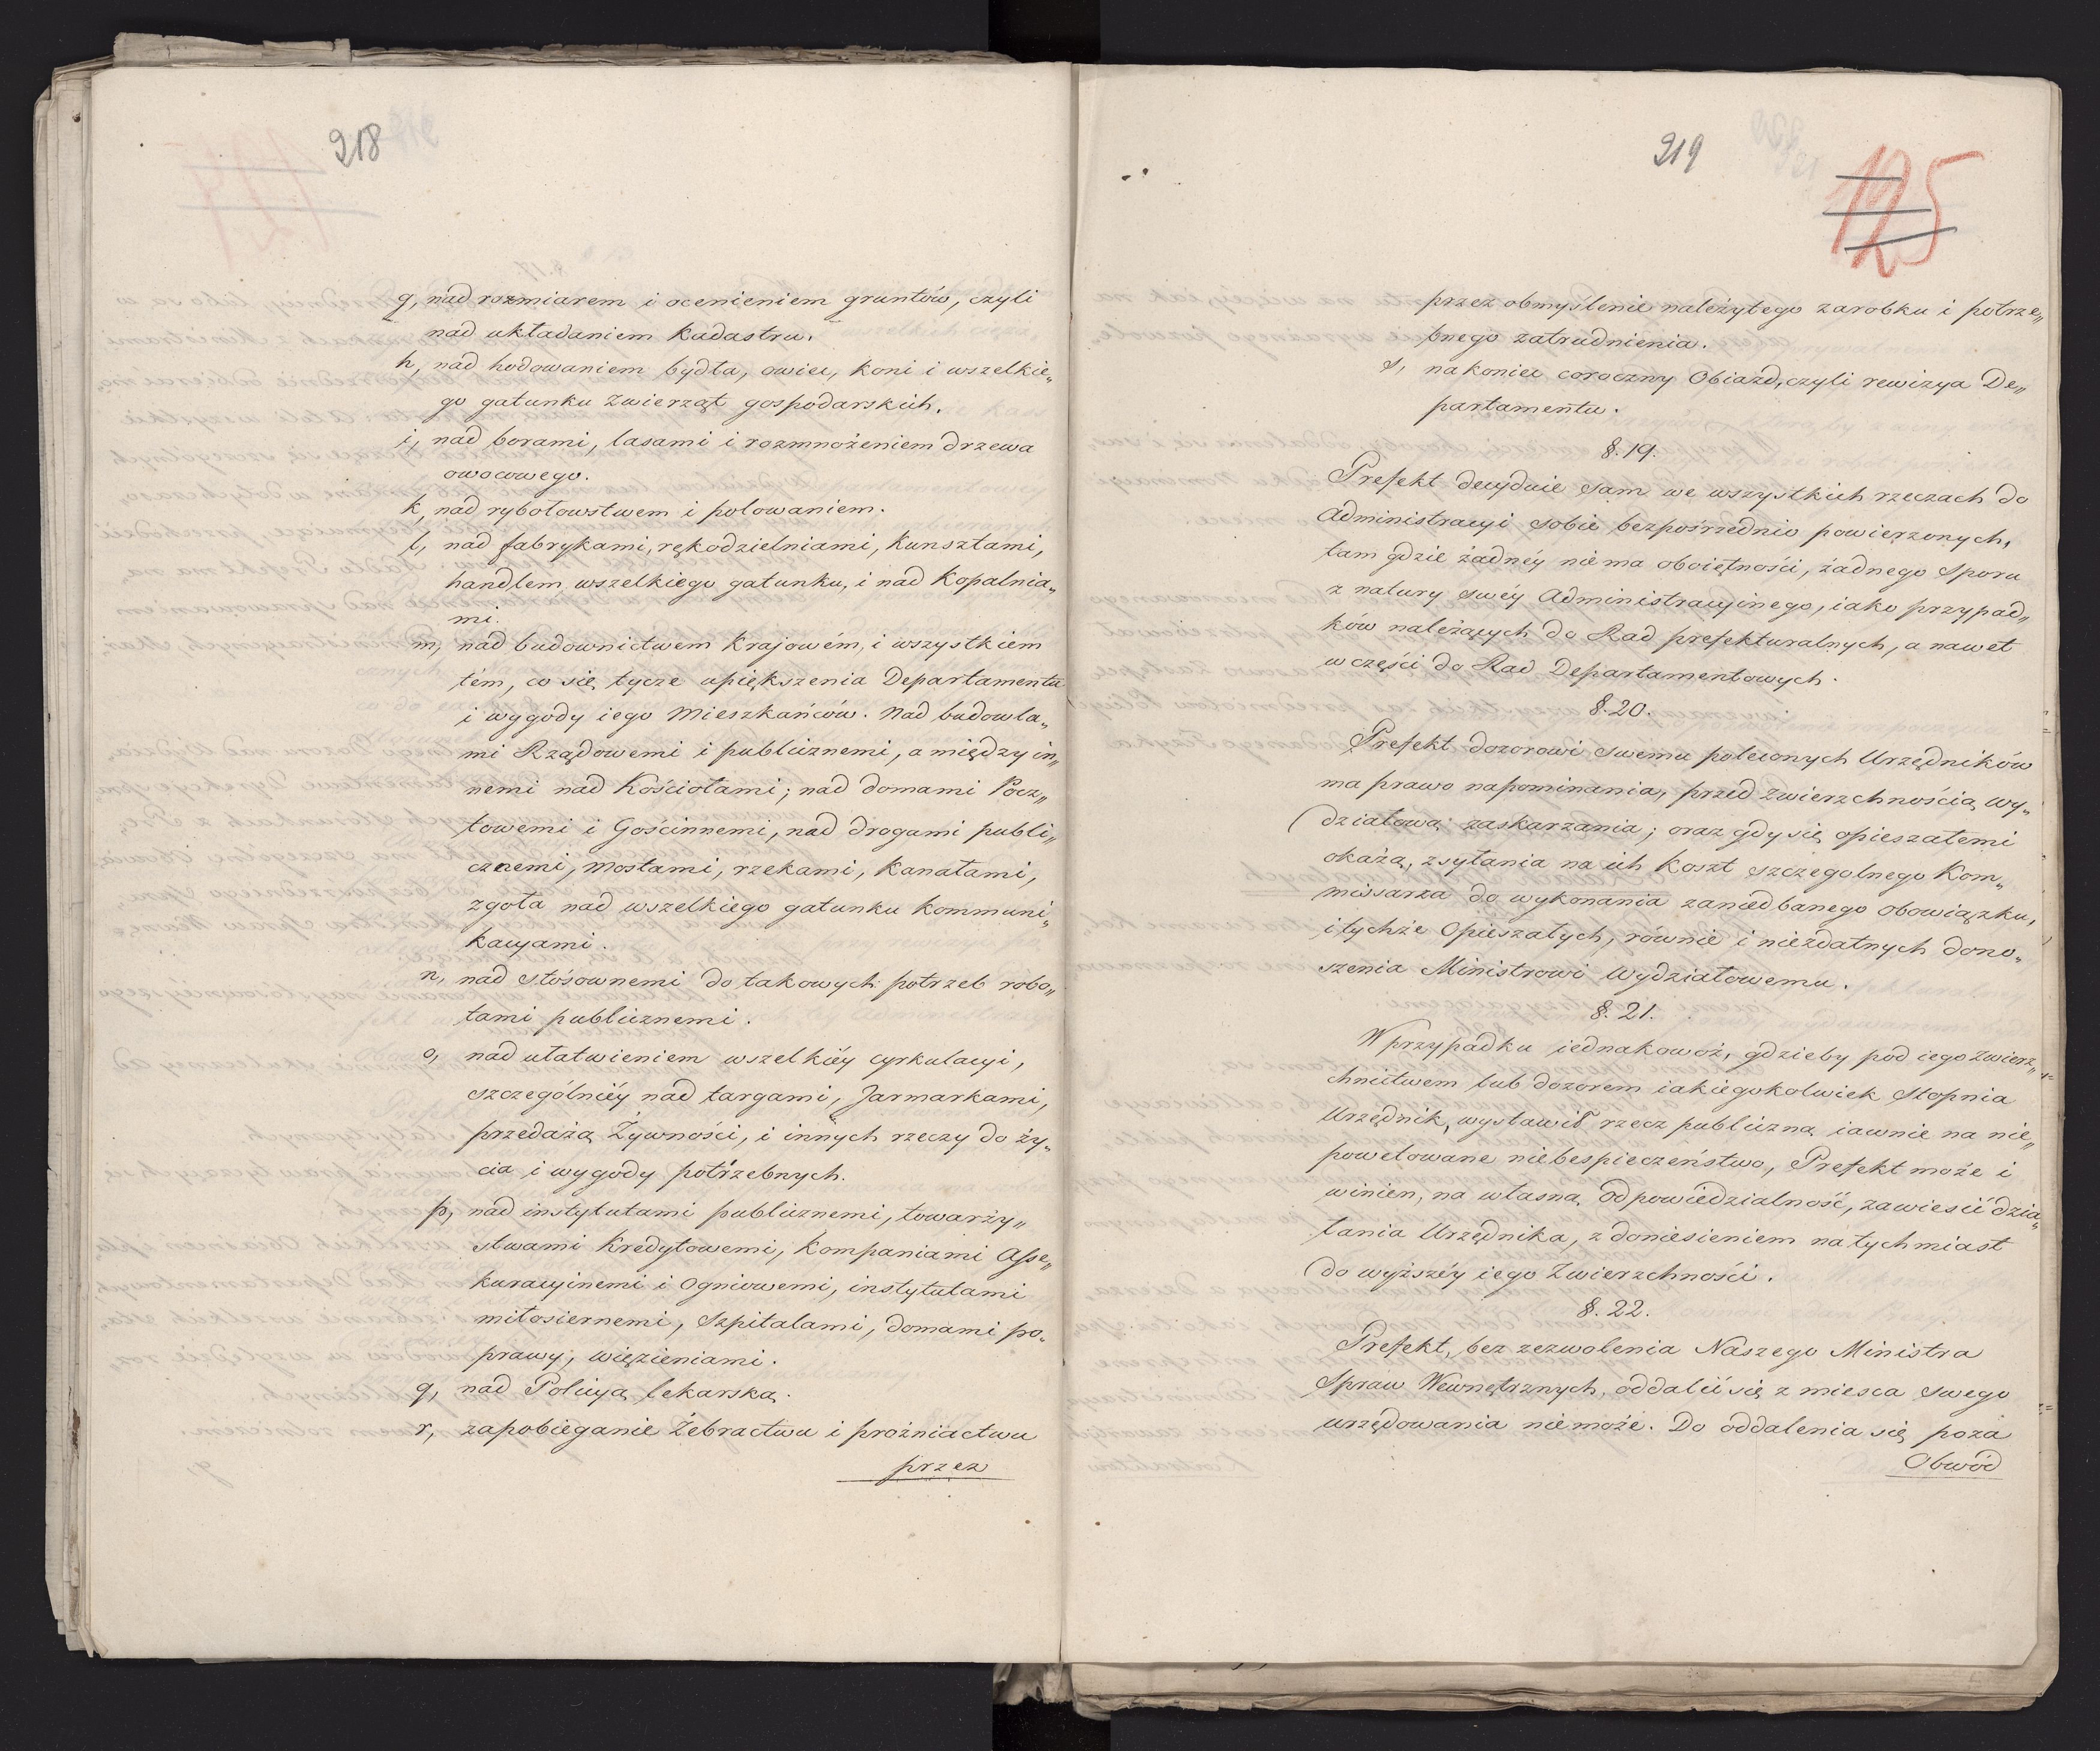 218
g, nad rozmiarem i ocenieniem gruntów, czyli
nad układaniem Kadastru.
h, nad hodowaniem bydła, owiec, koni i wszelkie„
go gatunku zwierząt gospodarskich.
i, nad borami, lasami i rozmnożeniem drzewa
owocowego.
k, nad rybołowstwem i polowaniem.
l, nad fabrykami, rękodzielniami, Kunsztami,
handlem wszelkiego gatunku, i nad Kopalnia„
mi.
m, nad budownictwem Krajowém, i wszystkiem
tém, co się tycze upiększenia Departamentu
i wygody iego Mieszkańców. Nad budowla„
mi Rządowemi i publicznemi, a między in„
nemi nad Kościołami; nad domami Pocz„
towemi i Gościnnemi, nad drogami publi„
cznemi, Mostami, rzekami, Kanałami,
zgoła nad wszelkiego gatunku Kommuni„
kacyami.
n, nad stósownemi do takowych potrzeb robo„
tami publicznemi.
o, nad ułatwieniem wszelkiéy cyrkulacyi,
szczególniéy nad targami, Jarmarkami,
przedażą Żywności, i innych rzeczy do ży„
cia i wygody potrzebnych.
p, nad instytutami publicznemi, towarzy„
stwami Kredytowemi, Kompaniami Asse„
kuracyinemi i Ogniowemi, instytutami
miłosiernemi, Szpitalami, domami po„
prawy, więzieniami.
q, nad Policyą lekarską.
r, zapobieganie Żebractwu i prożniactwu
przez
219
125
przez obmyslenie należytego zarobku i potrze„
bnego zatrudnienia.
s, nakoniec coroczny Obiazd, czyli rewizya De„
partamentu.
§. 19.
Prefekt decyduie sam we wszystkich rzeczach do
Administracyi sobie bezpośrednio powierzonych,
tam gdzie żadnéy niema oboiętności, żadnego Sporu
z natury swéy Administracyinego, iako przypad„
ków należących do Rad prefekturalnych, a nawet
w części do Rad Departamentowych.
§. 20.
Prefekt dozorowi swemu poleconych Urzędników
ma prawo napominania, przed zwierzchnością wy„
działową zaskarzania; oraz gdy się opieszałemi
okażą, zsyłania na ich Koszt szczegolnego Kom„
missarza do wykonania zaniedbanego obowiązku,
i tychże Opieszałych, równie i niezdatnych dono„
szenia Ministrowi Wydziałowemu.
§. 21.
W przypadku iednakowoż, gdzieby pod iego zwierz„
chnictwem lub dozorem iakiegokolwiek Stopnia
Urzędnik, wystawił rzecz publiczną iawnie na nie„
powetowane niebespieczeństwo, Prefekt może i
winien, na własną odpowiedzialność, zawiesić dzia„
łania Urzędnika, z doniesieniem natychmiast
do wyższéy iego Zwierzchności.
§. 22.
Prefekt, bez zezwolenia Naszego Ministra
Spraw Wewnętrznych, oddalić się z miesca swego
urzędowania niemoże. Do oddalenia się poza
Obwód